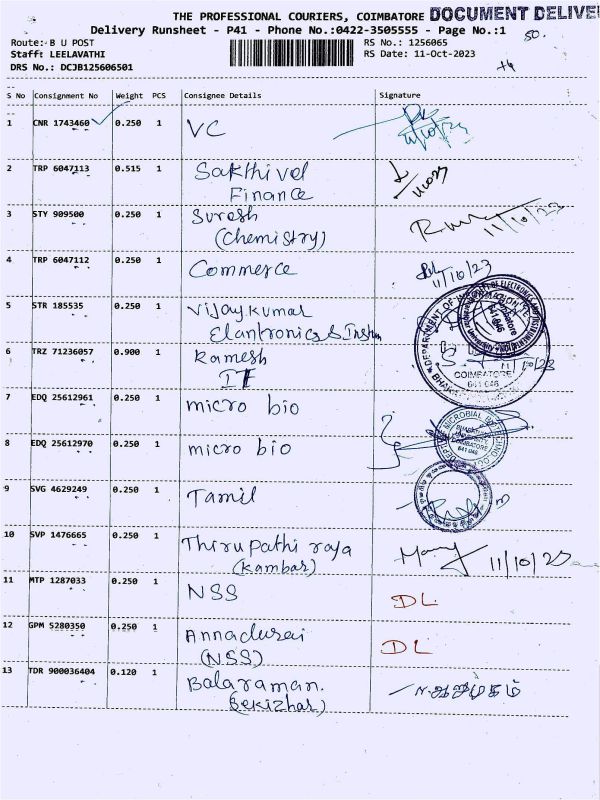 THE PROFESSIONAL COURIERS, COIMBATORE DOCUMENT DELIVE
Delivery Runsheet - P41 - Phone No.:0422-3505555 - Page No.:1
50.
Route: B U POST
RS No.: 1256065
Staff: LEELAVATHI
RS Date: 11-Oct-2023
DRS No.: DCJB125606501
S No Consignment No Weight PCS Consignee Details Signature
1 CNR 1743460 0.250 1 VC 11/10/23
2 TRP 6047113 0.515 1 Sakthivel
Finance
3 STY 909500 0.250 1 Suresh
(Chemistry) 11/10/23
4 TRP 6047112 0.250 1 Commerce 11/10/23
5 STR 185535 0.250 1 Vijaykumar
Elantronics & Instrum
6 TRZ 71236057 0.900 1 Ramesh
IT
COIMBATORE
641 046
7 EDQ 25612961 0.250 1 micro bio
8 EDQ 25612970 0.250 1 micro bio
COIMBATORE
641 046
9 SVG 4629249 0.250 1 Tamil
10 SVP 1476665 0.250 1 Thirupathi raja
(Kambar) 11/10/23
11 MTP 1287033 0.250 1 NSS DL
12 GPM 5280350 0.250 1 Annadurai
(NSS) DL
13 TDR 900036404 0.120 1 Balaraman.
(Sekizhar)